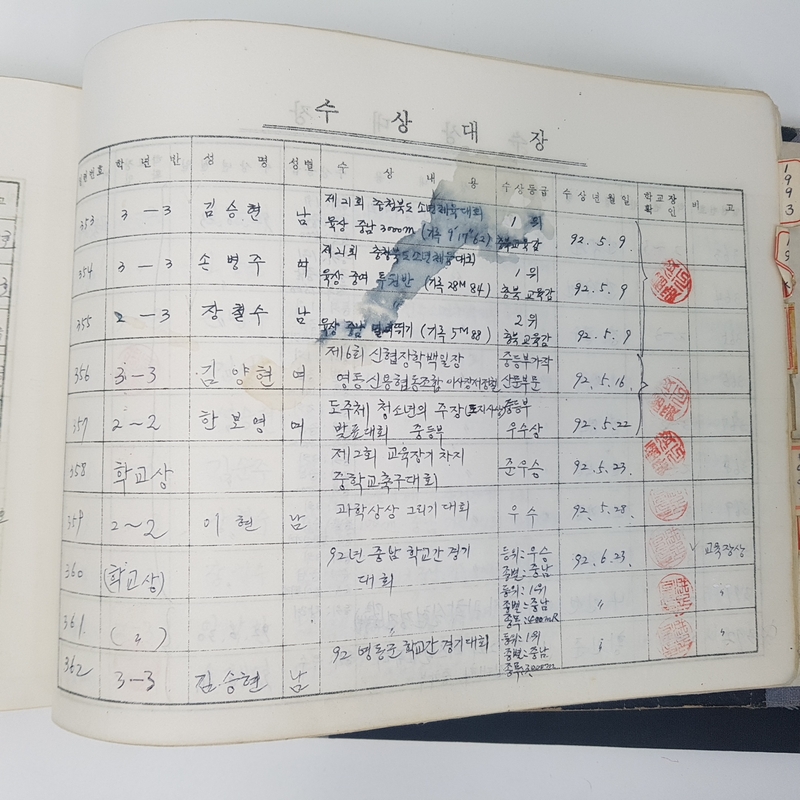 수 상 대 장
학 년 반 성 명 성별 수 상 내 용 수상등급 수 상 년 월 일 학교장 확 인 비 고
353 3-3 김승현 남 제21회 충청북도 소년체육대회 1위 92.5.9.
육상 중남 3000m (기록 9'17"62) 충북교육감
354 3-3 손병주 여 제21회 충청북도 소년체육대회 1위 92.5.9
육상 중여 투원반 (기록 28M 84) 충북교육감
355 2-3 장철수 남 2위 92.5.9
육상 중남 (기록 5M 88) 충북교육감
356 3-3 김양현 여 제6회 신협장학백일장 중등부가작 92.5.16.
영동신용협동조합 산문부문
357 2~2 한보영 여 도주체 청소년의 주장 중등부 92.5.22
발표대회 중등부 우수상
358 학교상 제2회 교육장기 차지 준우승 92.5.23.
중학교축구대회
359 2~2 이현 남 과학상상 그리기 대회 우수 92.5.28.
360 (학교상) 92년 중남 학교간 경기 등위:우승 92.6.23. 교육장상
대회 종별:중남
361. (〃) 〃 등위:1위 〃 〃
종별:중남
종목:400mR
362 3-3 김승현 남 92 영동군 학교간 경기대회 등위:1위 〃 〃
종별:중남
종목:3000m
1993